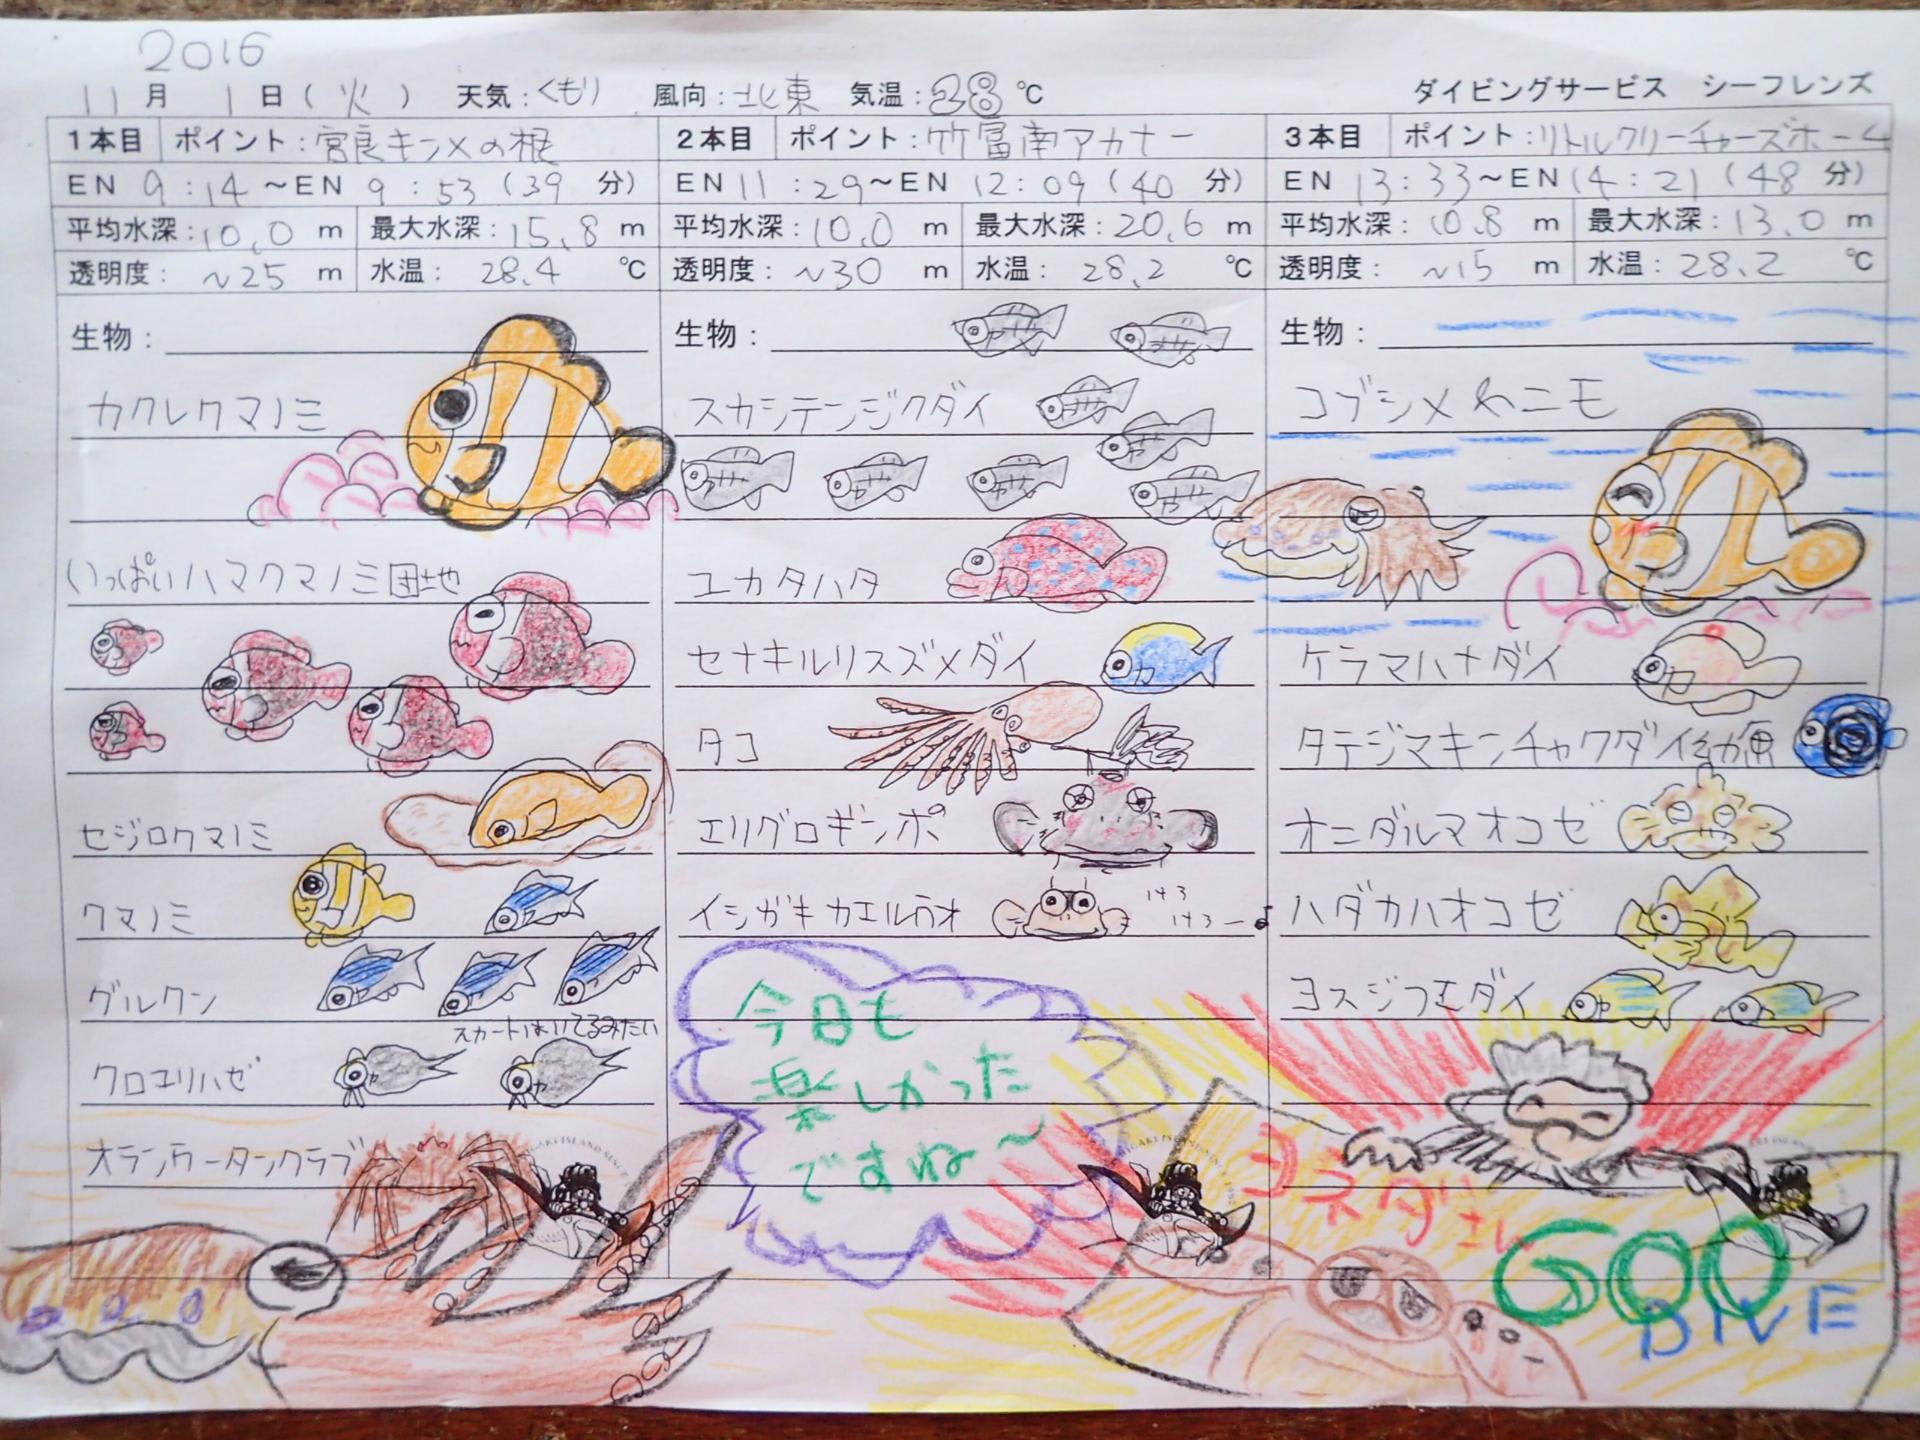 2016
11月 1日(火) 天気:くもり 風向:北東 気温:28℃ ダイビングサービス シーフレンズ
1本目 ポイント:宮良キンメの根
EN 9:14~EN 9:53(39分)
平均水深:10.0 m 最大水深:15.8 m
透明度:~25 m 水温:28.4 ℃
生物:
カクレクマノミ
いっぱいハマクマノミ団地
セジロクマノミ
クマノミ
グルクン
スカートはいてるみたい
クロユリハゼ
オランウータンクラブ
2本目 ポイント:竹富南アカナー
EN 11:29~EN 12:09(40分)
平均水深:10.0 m 最大水深:20.6 m
透明度:~30 m 水温:28.2 ℃
生物:
スカシテンジクダイ
ユカタハタ
セナキルリスズメダイ
タコ
エリグロギンポ
イシガキカエルウオ
けろ
けろー♪
今日も
楽しかった
ですね~
3本目 ポイント:リトルクリーチャーズホーム
EN 13:33~EN 14:21(48分)
平均水深:10.8 m 最大水深:13.0 m
透明度:~15 m 水温:28.2 ℃
生物:
コブシメwニモ
ケラマハナダイ
タテジマキンチャクダイ幼魚
オニダルマオコゼ
ハダカハオコゼ
ヨスジフエダイ
ヨネダさん
600
DIVE